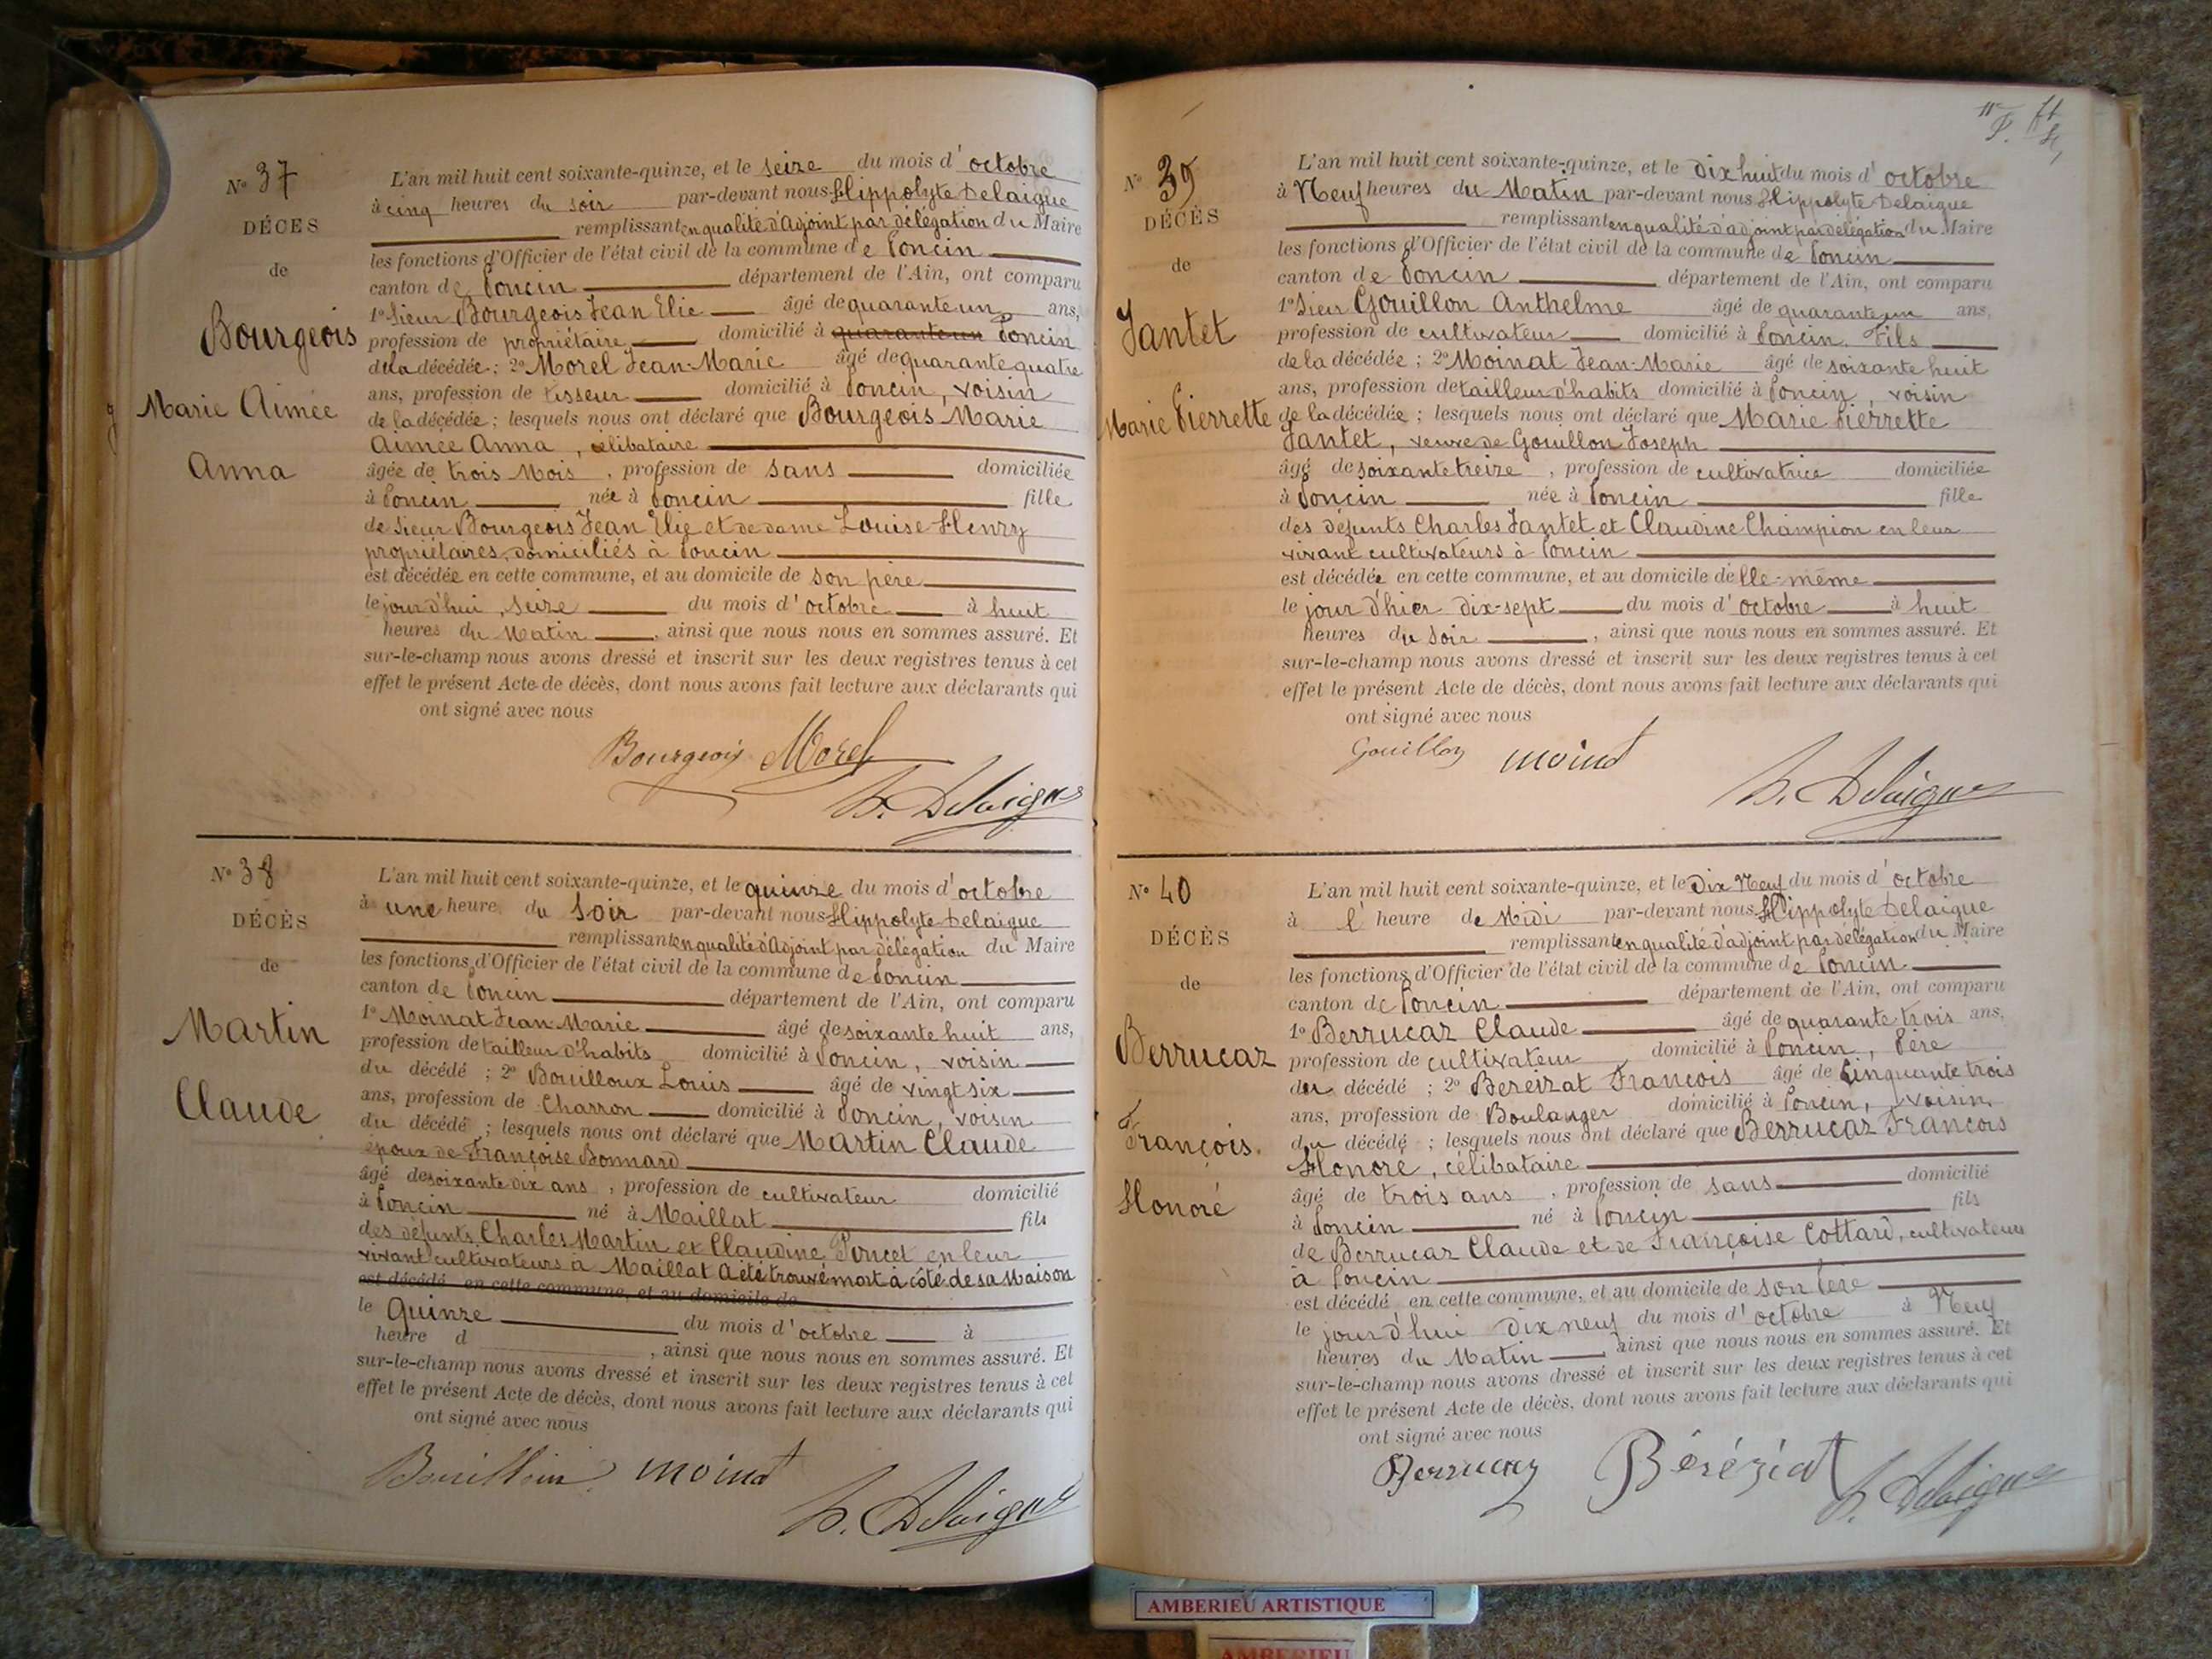 N° 37
DÉCÈS
de
Bourgeois
Marie Aimée
Anna
L'an mil huit cent soixante-quinze, et le seize du mois d'octobre
à cinq heures du soir par-devant nous Hippolyte Delaigue
remplissant en qualité d'Adjoint par délégation du Maire
les fonctions d'Officier de l'état civil de la commune de Poncin
canton de Poncin département de l'Ain, ont comparu
1° Sieur Bourgeois Jean Elie âgé de quarante un ans,
profession de propriétaire domicilié à quarante un Poncin
de la décédée ; 2° Morel Jean-Marie âgé de quarante quatre
ans, profession de tisseur domicilié à Poncin, voisin
de la décédée ; lesquels nous ont déclaré que Bourgeois Marie
Aimée Anna, célibataire
âgée de trois Mois, profession de sans domiciliée
à Poncin née à Poncin fille
de Sieur Bourgeois Jean Elie et de dame Louise Henry
propriétaires, domiciliés à Poncin
est décédée en cette commune, et au domicile de son père
le jour d'hui, seize du mois d'octobre à huit
heures du Matin, ainsi que nous nous en sommes assuré. Et
sur-le-champ nous avons dressé et inscrit sur les deux registres tenus à cet
effet le présent Acte de décès, dont nous avons fait lecture aux déclarants qui
ont signé avec nous
Bourgeois Morel
h. Delaigue
N° 38
DÉCÈS
de
Martin
Claude
L'an mil huit cent soixante-quinze, et le quinze du mois d'octobre
à une heure du Soir par-devant nous Hippolyte Delaigue
remplissant en qualité d'Adjoint par délégation du Maire
les fonctions d'Officier de l'état civil de la commune de Poncin
canton de Poncin département de l'Ain, ont comparu
1° Moinat Jean-Marie âgé de soixante huit ans,
profession de tailleur d'habits domicilié à Poncin, voisin
du décédé ; 2° Bouilloux Louis âgé de vingt six
ans, profession de Charron domicilié à Poncin, voisin
du décédé ; lesquels nous ont déclaré que Martin Claude
époux de Françoise Bonnard
âgé de soixante dix ans, profession de cultivateur domicilié
à Poncin né à Maillat fils
des défunts Charles Martin et Claudine Poncet en leur
vivant cultivateurs à Maillat A été trouvé mort à côté de sa Maison
est décédé en cette commune, et au domicile de
le Quinze du mois d'octobre à
heure d , ainsi que nous nous en sommes assuré. Et
sur-le-champ nous avons dressé et inscrit sur les deux registres tenus à cet
effet le présent Acte de décès, dont nous avons fait lecture aux déclarants qui
ont signé avec nous
moinat
h. Delaigue
N° 39
DÉCÈS
de
Jantet
Marie Pierrette
L'an mil huit cent soixante-quinze, et le Dix huit du mois d'octobre
à Neuf heures du Matin par-devant nous Hippolyte Delaigue
remplissant en qualité d'adjoint par délégation du Maire
les fonctions d'Officier de l'état civil de la commune de Poncin
canton de Poncin département de l'Ain, ont comparu
1° Sieur Gouillon Anthelme âgé de quarante un ans,
profession de cultivateur domicilié à Poncin. Fils
de la décédée ; 2° Moinat Jean-Marie âgé de soixante huit
ans, profession de tailleur d'habits domicilié à Poncin, voisin
de la décédée ; lesquels nous ont déclaré que Marie Pierrette
Jantet, veuve de Gouillon Joseph
âgé de soixante treize, profession de cultivatrice domiciliée
à Poncin née à Poncin fille
des défunts Charles Jantet et Claudine Champion en leur
vivant cultivateurs à Poncin
est décédée en cette commune, et au domicile d'elle-même
le jour d'hier dix-sept du mois d'octobre à huit
heures du Soir, ainsi que nous nous en sommes assuré. Et
sur-le-champ nous avons dressé et inscrit sur les deux registres tenus à cet
effet le présent Acte de décès, dont nous avons fait lecture aux déclarants qui
ont signé avec nous
Gouillon moinat
h. Delaigue
N° 40
DÉCÈS
de
Berrucaz
François.
Honoré
L'an mil huit cent soixante-quinze, et le Dix Neuf du mois d'octobre
à l'heure de Midi par-devant nous Hippolyte Delaigue
remplissant en qualité d'adjoint par délégation du Maire
les fonctions d'Officier de l'état civil de la commune de Poncin
canton de Poncin département de l'Ain, ont comparu
1° Berrucaz Claude âgé de quarante trois ans,
profession de cultivateur, domicilié à Poncin, Père
du décédé ; 2° Bereizat François âgé de Cinquante trois
ans, profession de Boulanger domicilié à Poncin, voisin
du décédé ; lesquels nous ont déclaré que Berrucaz François
Honoré, célibataire
âgé de trois ans, profession de sans domicilié
à Poncin né à Poncin fils
de Berrucaz Claude et de Françoise Cottard, cultivateurs
à Poncin
est décédé en cette commune, et au domicile de son Père
le jour d'hui dix neuf du mois d'octobre à Neuf
heures du Matin, ainsi que nous nous en sommes assuré. Et
sur-le-champ nous avons dressé et inscrit sur les deux registres tenus à cet
effet le présent Acte de décès, dont nous avons fait lecture aux déclarants qui
ont signé avec nous
Berrucaz Béréziat
h. Delaigue
AMBERIEU ARTISTIQUE
AMBERIEU